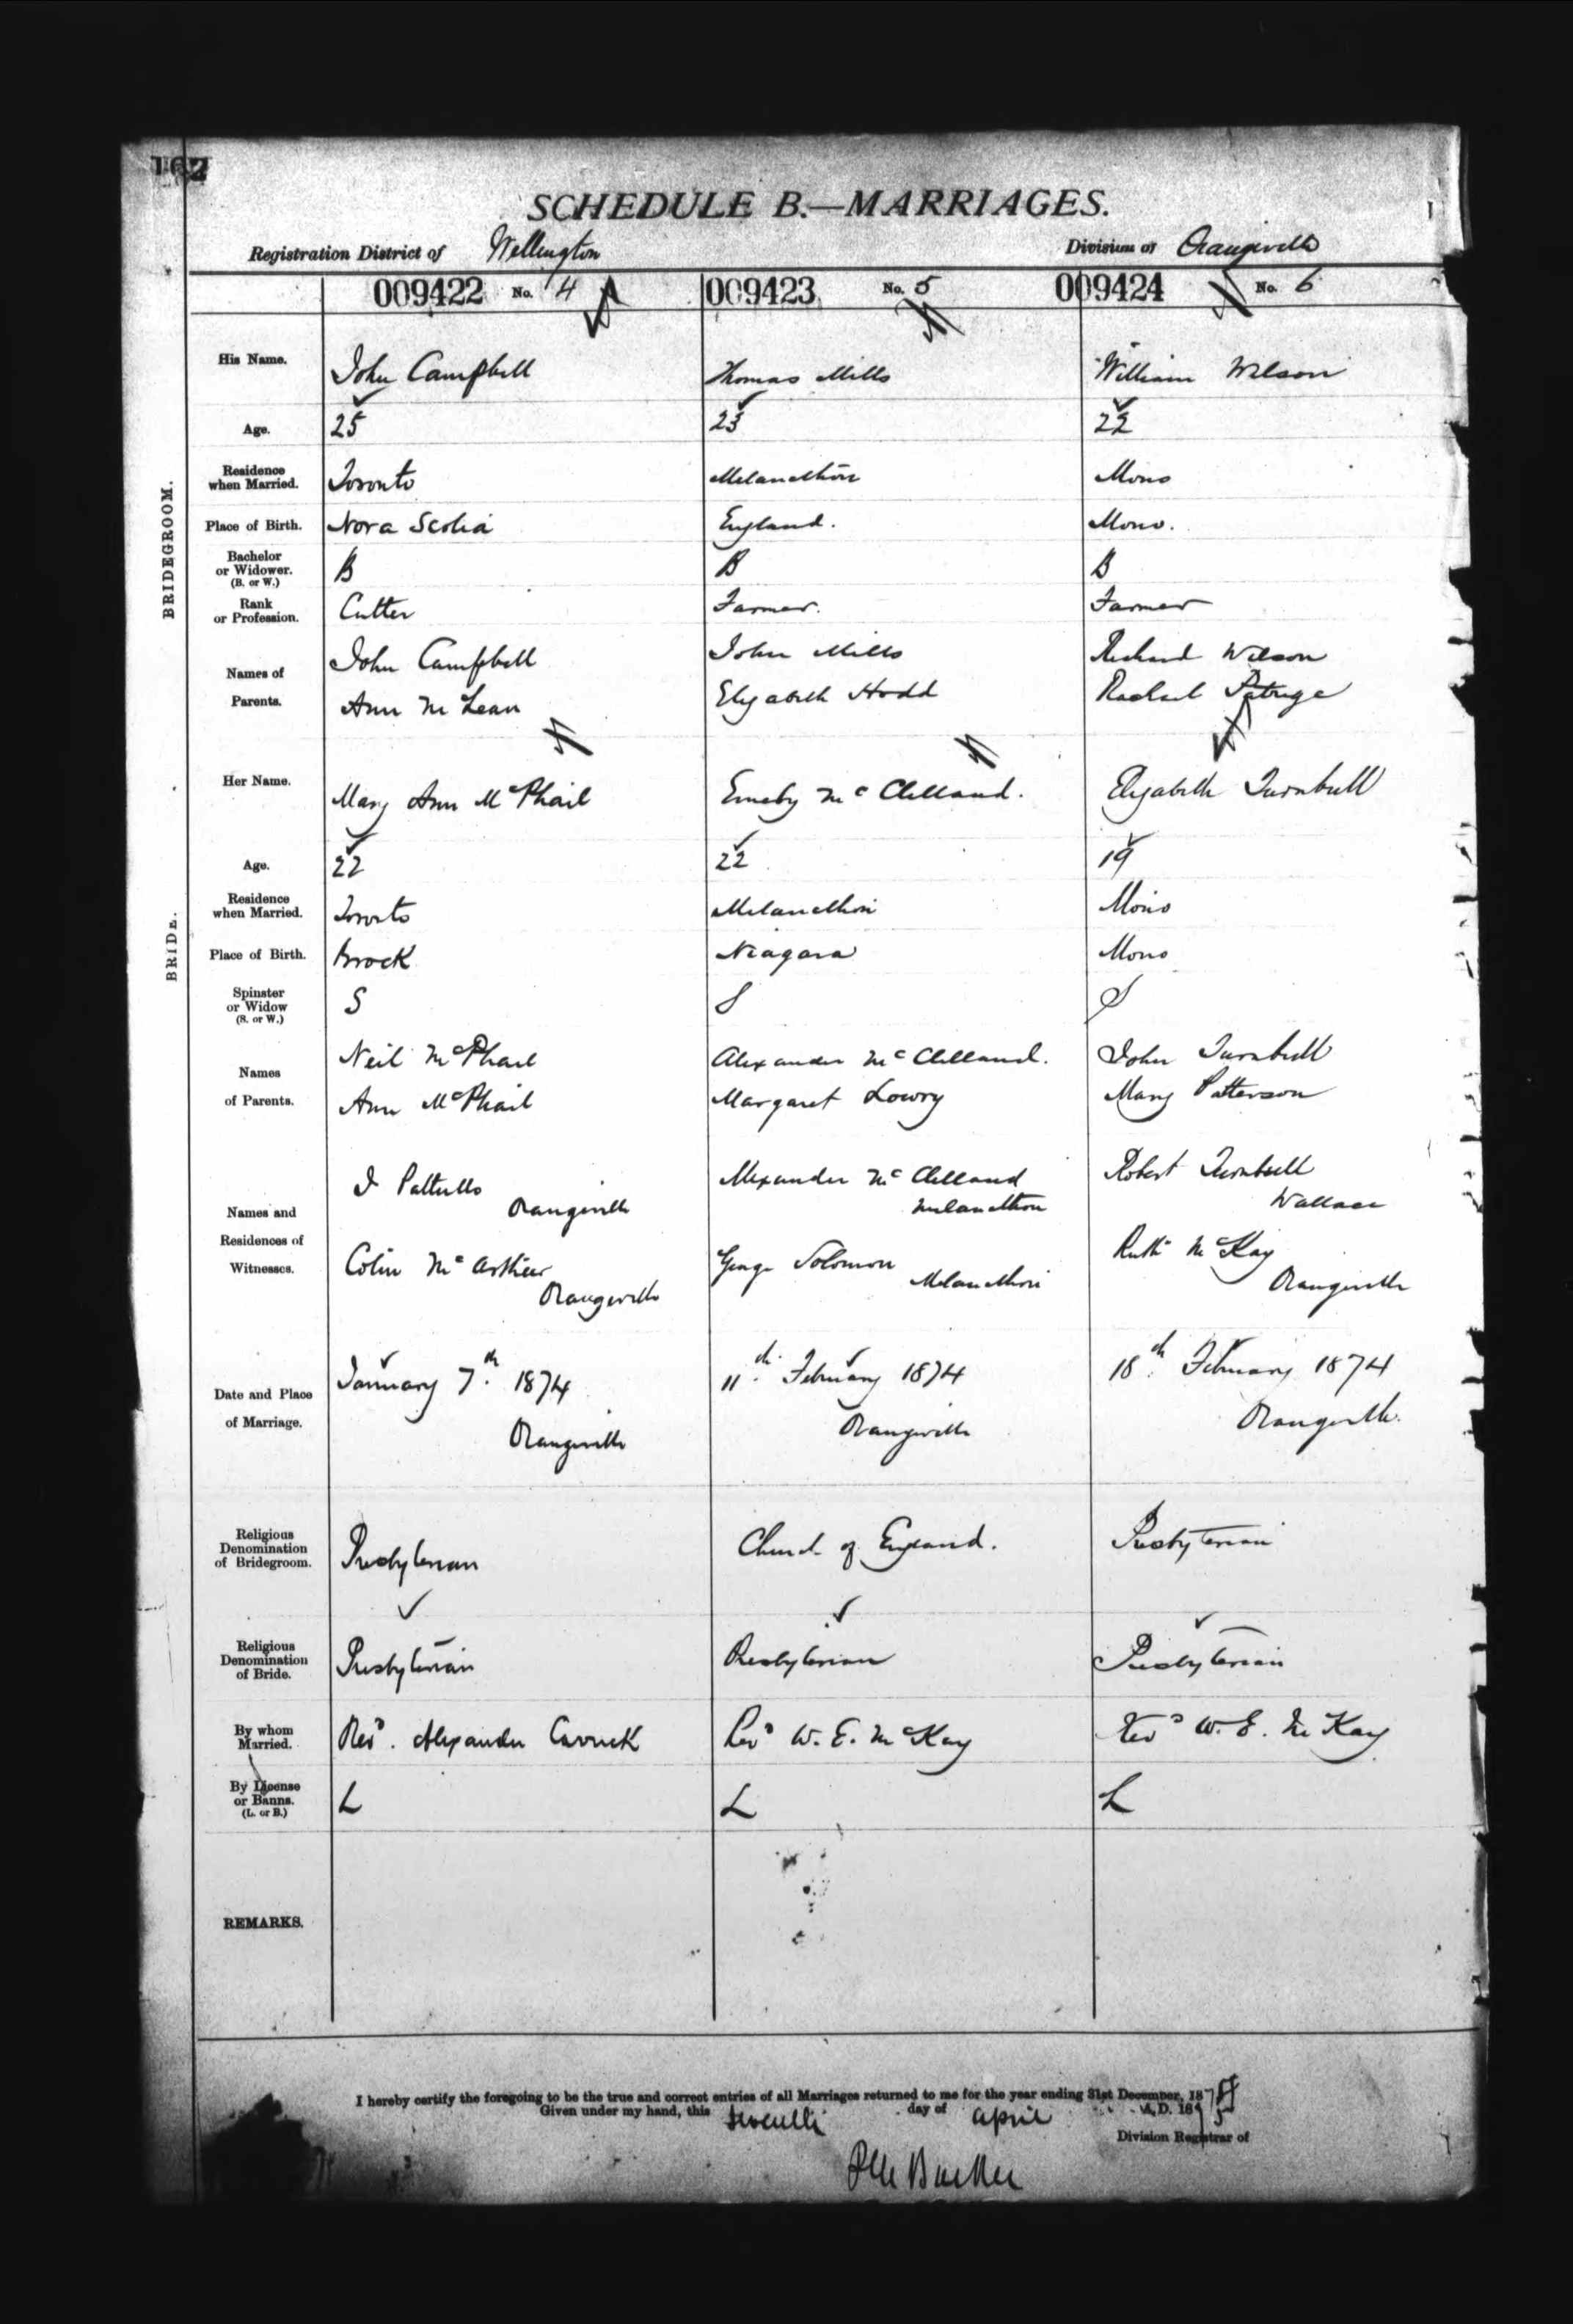 162
SCHEDULE B.—MARRIAGES.
Registration District of Wellington Division of Orangeville
009422 No. 4 009423 No. 5 009424 No. 6
BRIDEGROOM.
His Name. John Campbell Thomas Mills William Wilson
Age. 25 23 22
Residence when Married. Toronto Melancthon Mono
Place of Birth. Nova Scotia England. Mono.
Bachelor or Widower. (B. or W.) B B B
Rank or Profession. Cutter Farmer. Farmer
Names of John Campbell John Mills Richard Wilson
Parents. Ann McLean Elizabeth Hodd Rachael
BRIDE.
Her Name. Mary Ann McPhail McClelland. Elizabeth Turnbull
Age. 22 22 19
Residence when Married. Toronto Melancthon Mono
Place of Birth. Brock Niagara Mono
Spinster or Widow (S. or W.) S S S
Names Neil McPhail Alexander McClelland. John Turnbull
of Parents. Ann McPhail Margaret Lowry Mary Patterson
Names and Residences of Witnesses.
J Pattullo Alexander McClelland Robert Turnbull
Orangeville Melancthon Wallace
Colin McArthur George Solomon Ruth McKay
Orangeville Melancthon Orangeville
Date and Place January 7th. 1874 11th. February 1874 18th. February 1874
of Marriage. Orangeville Orangeville Orangeville.
Religious Denomination of Bridegroom. Presbyterian Church of England. Presbyterian
Religious Denomination of Bride. Presbyterian Presbyterian Presbyterian
By whom Married. Revd. Alexander Carrick Revd W. E. McKay Revd W. E. McKay
By License or Banns. (L. or B.) L L L
REMARKS.
I hereby certify the foregoing to be the true and correct entries of all Marriages returned to me for the year ending 31st December, 187
Given under my hand, this day of April A.D. 18
Division Registrar of